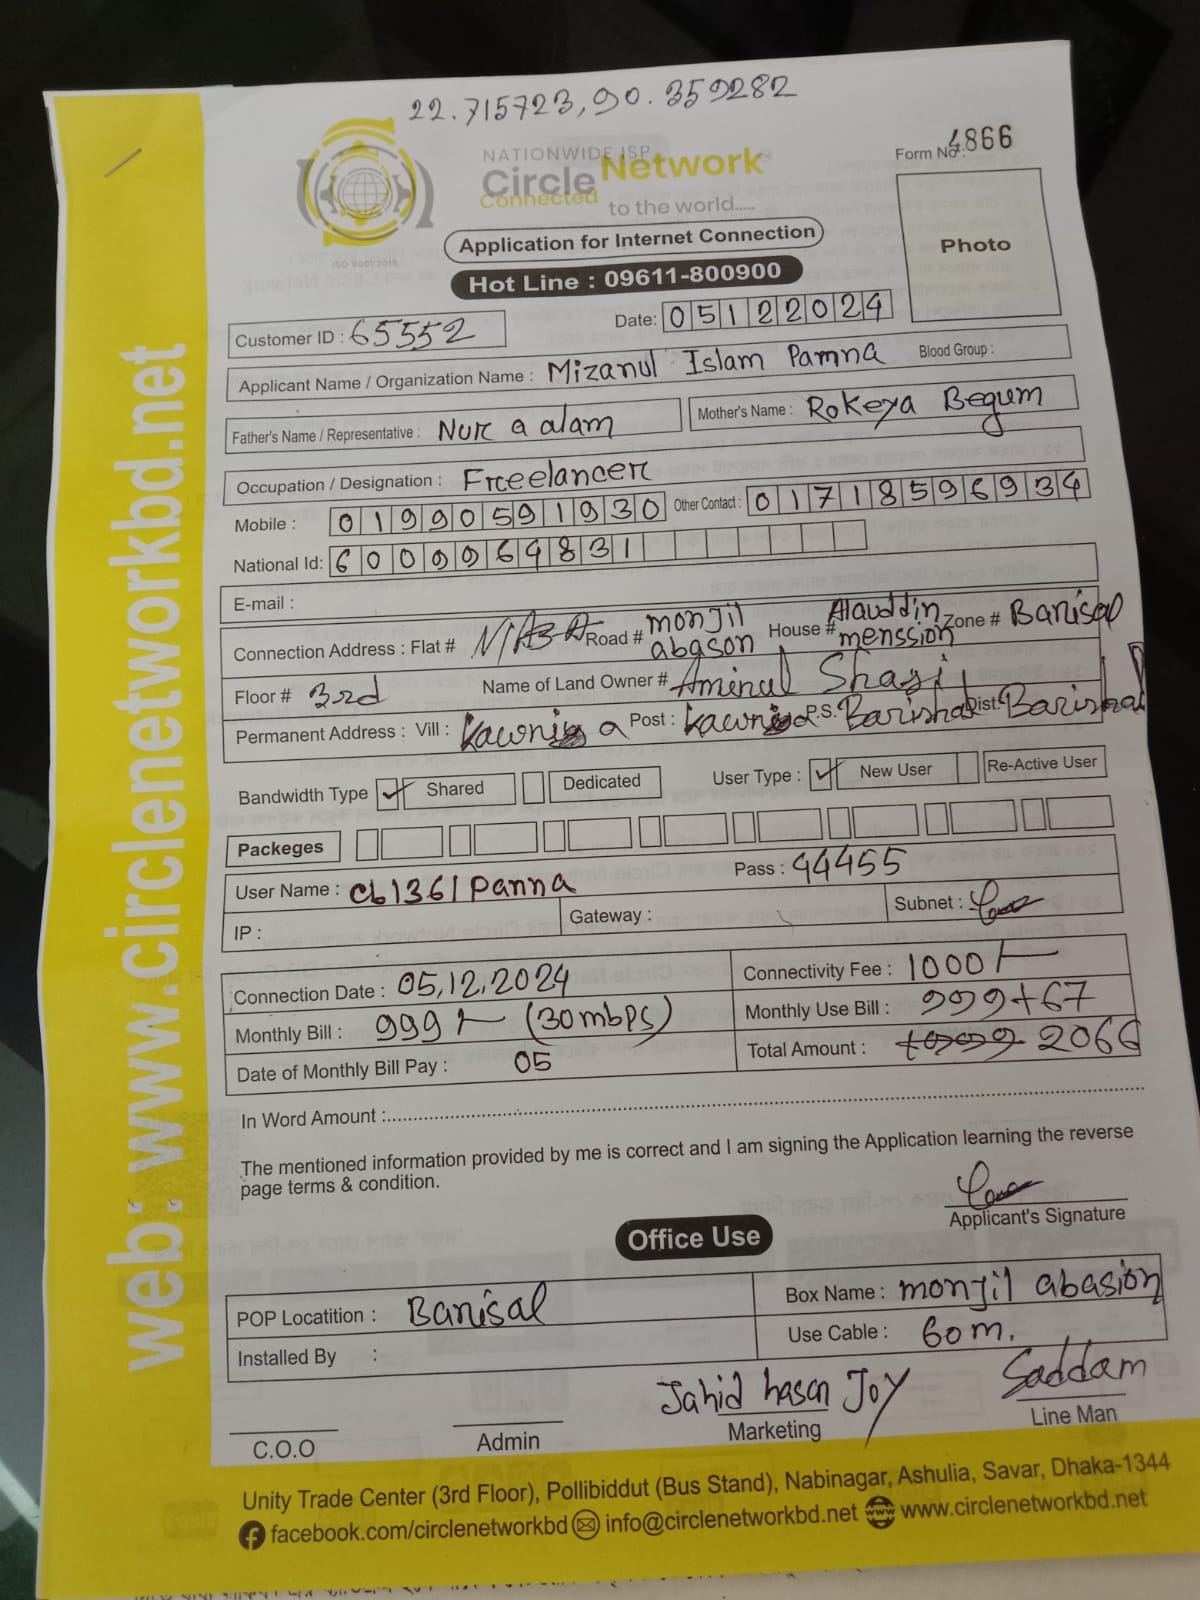 22.715723,90.359282
NATIONWIDE ISP
Circle Network
Connected to the world.....
ISO 9001:2015
Form No: 4866
Photo
Application for Internet Connection
Hot Line : 09611-800900
Customer ID : 65552 Date: 05122024
Applicant Name / Organization Name : Mizanul Islam Pamna Blood Group :
Father's Name / Representative : Nur a alam Mother's Name : Rokeya Begum
Occupation / Designation : Freelancer
Mobile : 01990591930 Other Contact : 01718596934
National Id: 6009969831
E-mail :
Connection Address : Flat # Road # monjil abason House # Alauddin menssion Zone # Barisal
Floor # 3rd Name of Land Owner # Aminul
Permanent Address : Vill : Kawnia Post : Kawnia P.S. Barishal Dist. Barishal
Bandwidth Type Shared Dedicated User Type : New User Re-Active User
Packeges
User Name : cb1361panna Pass : 44455
IP : Gateway : Subnet :
Connection Date : 05,12,2024 Connectivity Fee : 1000/-
Monthly Bill : 999/- (30mbps) Monthly Use Bill : 999+67
Date of Monthly Bill Pay : 05 Total Amount : 2066
In Word Amount :
The mentioned information provided by me is correct and I am signing the Application learning the reverse
page terms & condition.
Applicant's Signature
Office Use
POP Locatition : Barisal Box Name : monjil abasion
Installed By : Use Cable : 60m.
Jahid hasan Joy Saddam
C.O.O Admin Marketing Line Man
Unity Trade Center (3rd Floor), Pollibiddut (Bus Stand), Nabinagar, Ashulia, Savar, Dhaka-1344
facebook.com/circlenetworkbd info@circlenetworkbd.net www.circlenetworkbd.net
web: www.circlenetworkbd.net